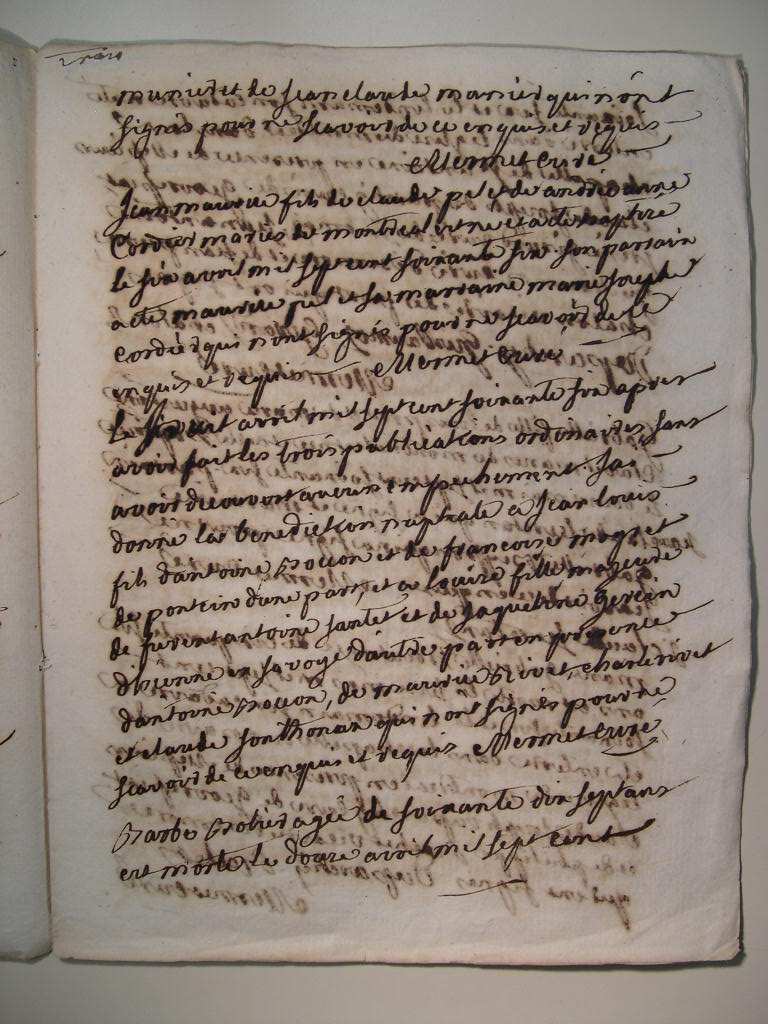 munier et de jean claude munier qui n ônt
signés pour ne scavoir de ce enquis et requis
Mermet curé
Jean maurice fils de claude pel et de andréanne
Cordier mariés de montreal est né et a ete baptizé
le six avril mil sept cent soixante six son parrain
a ete maurice pel et sa marraine marie josephe
Cordier qui n ont signés pour ne scavoir de ce
enquis et requis Mermet curé
Le huit avril mil sept cent soixante six apres
avoir fait les trois publications ordinaires sans
avoir decouvert aucuns empechement j ai
donné la benediction nuptiale a jean louis
fils dantoine Bollon et de francoise
de poncin dune part, et a louise fille majeure
de furent antoine et de jaqueline
dhienne en savoye dautre part en presence
dantoine Bollon, de maurice Rivet, charle rivet
et claude sonthonax qui n ônt signés pour ne
scavoir de ce enquis et requis Mermet curé
Barbe agée de soixante dix sept ans
est morte le douze avril mil sept cent